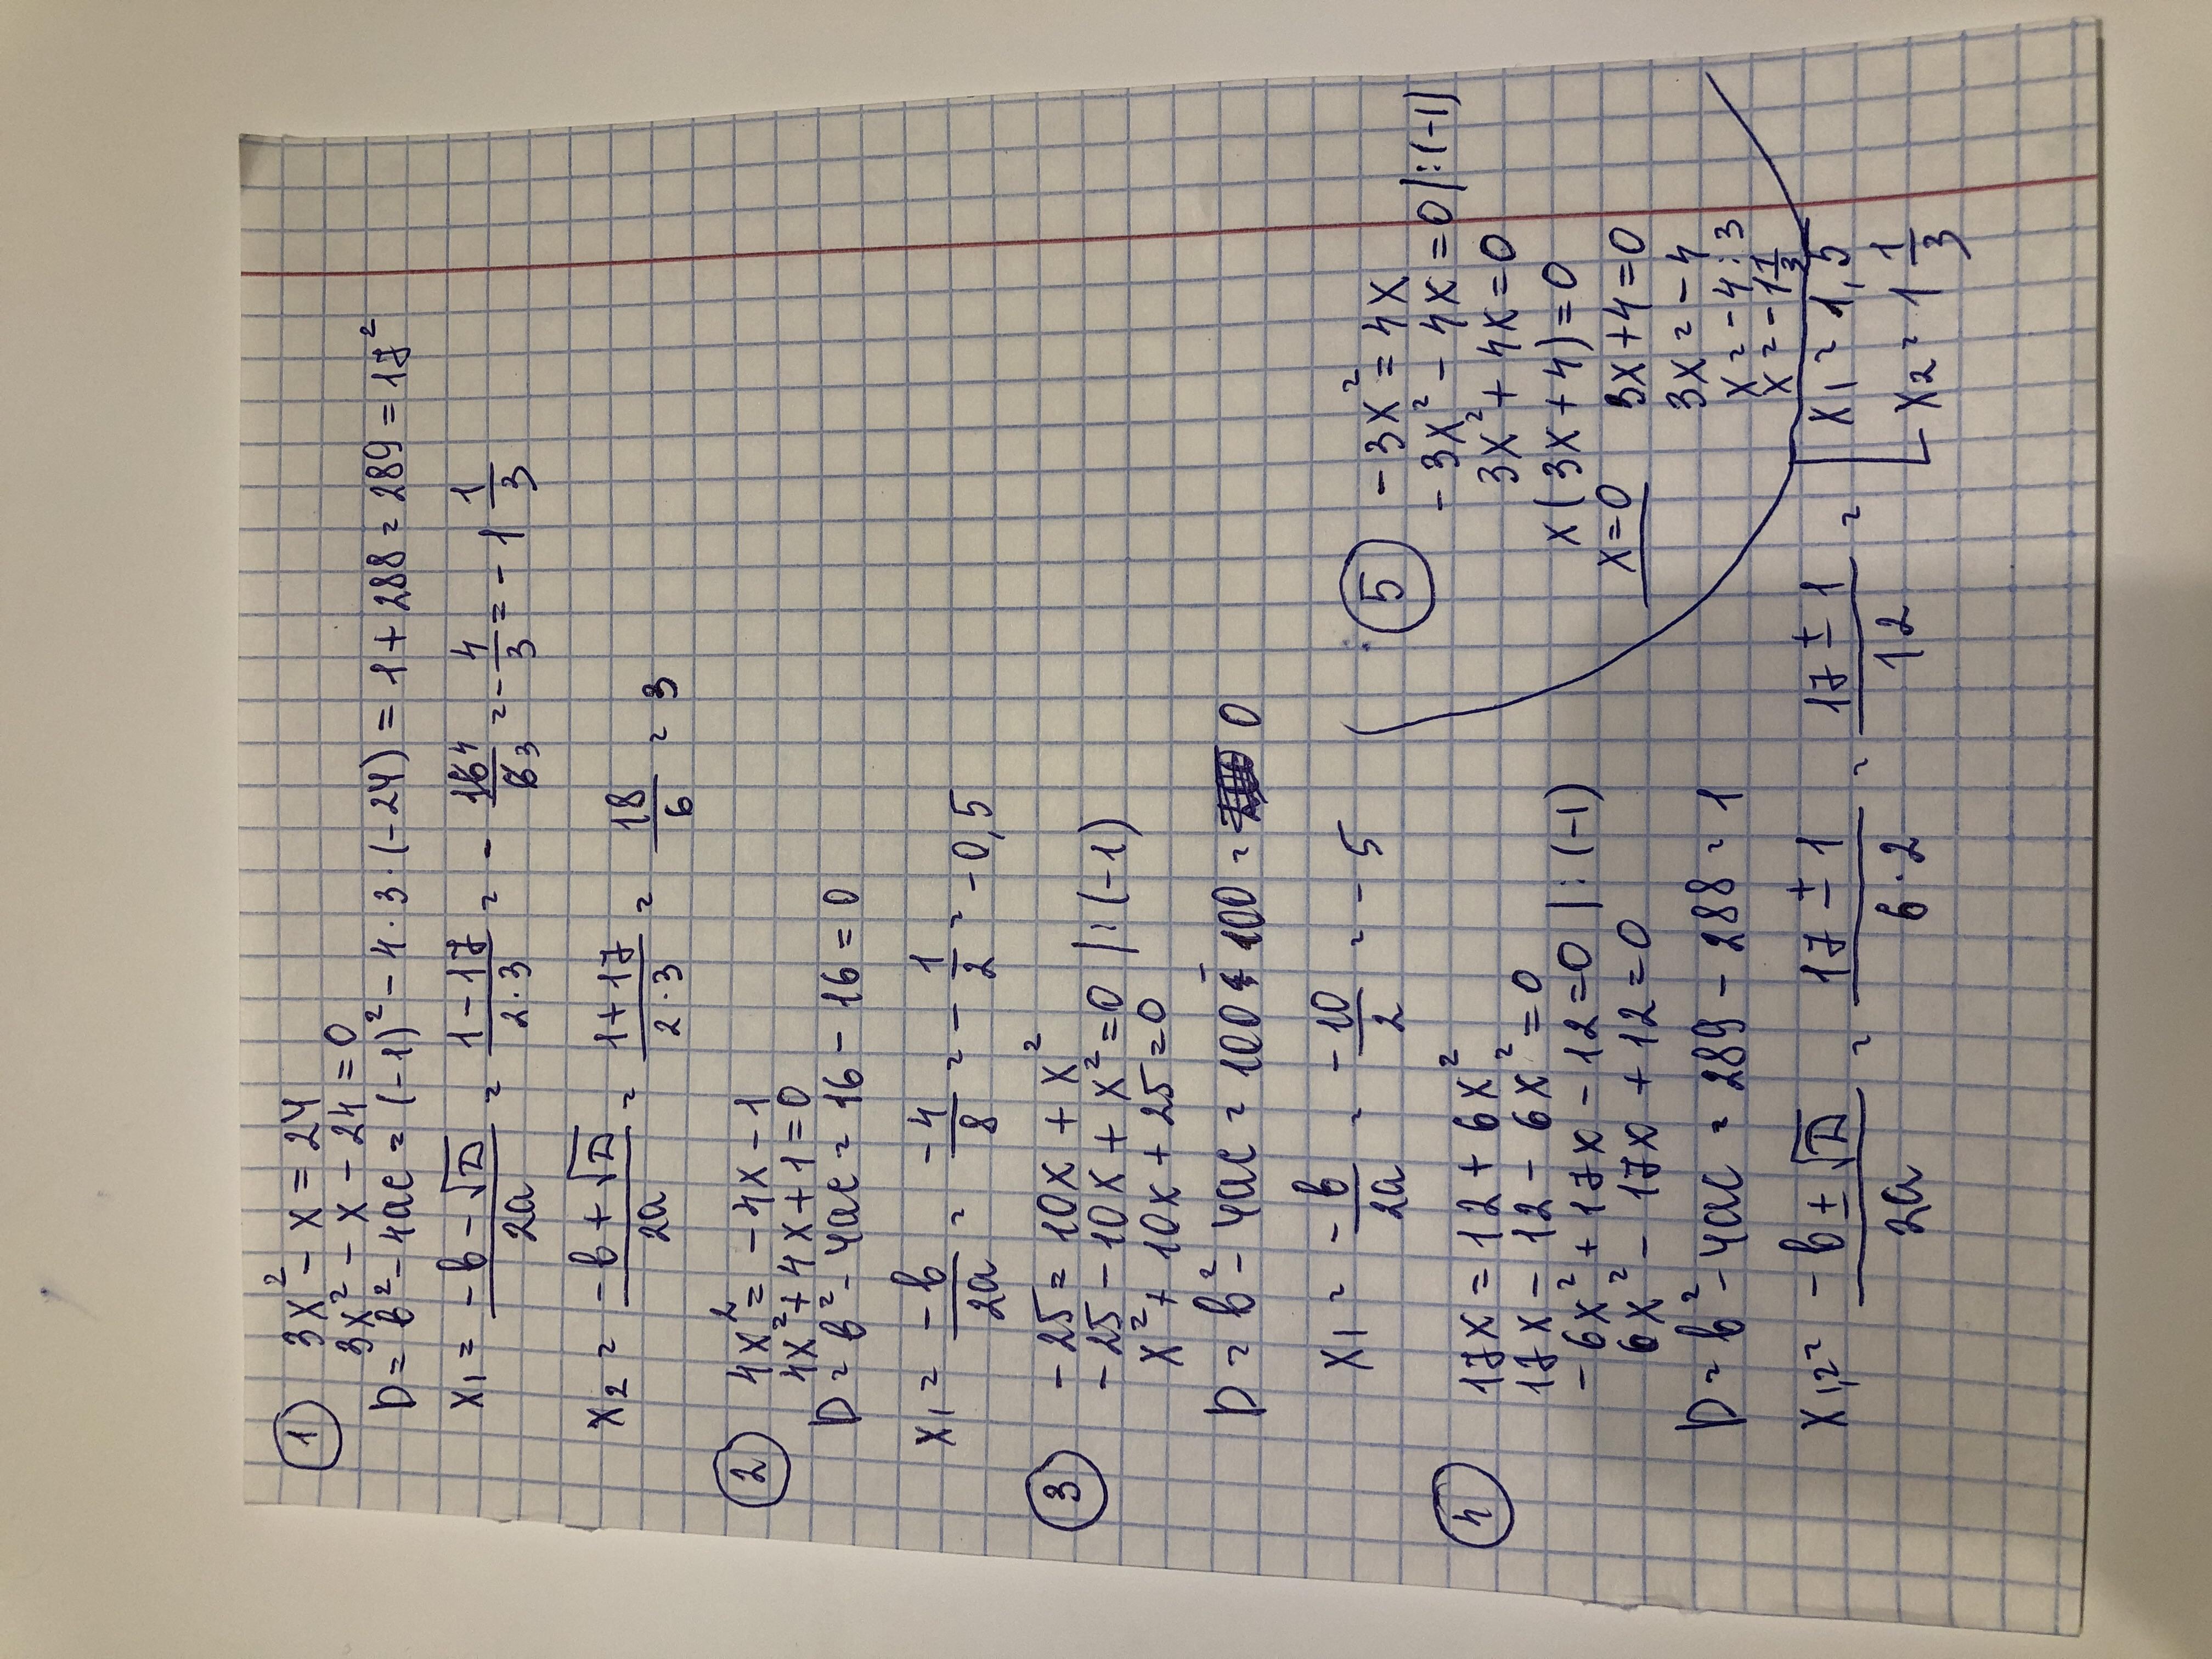 ① 3x² - x = 24
3x² - x - 24 = 0
D = b² - 4ac = (-1)² - 4 · 3 · (-24) = 1 + 288 = 289 = 17²
x₁ = (-b - √D)/2a = (1 - 17)/(2·3) = - 16/6 = - 4/3 = - 1 1/3
x₂ = (-b + √D)/2a = (1 + 17)/(2·3) = 18/6 = 3
② 4x² = - 4x - 1
4x² + 4x + 1 = 0
D = b² - 4ac = 16 - 16 = 0
x₁ = -b/2a = - 4/8 = - 1/2 = - 0,5
③ - 25 = 10x + x²
- 25 - 10x + x² = 0 | : (-1)
x² + 10x + 25 = 0
D = b² - 4ac = 100 - 100 = 0
x₁ = - b/2a = - 10/2 = - 5
④ 17x = 12 + 6x²
17x - 12 - 6x² = 0
- 6x² + 17x - 12 = 0 | : (-1)
6x² - 17x + 12 = 0
D = b² - 4ac = 289 - 288 = 1
x₁,₂ = (-b ± √D)/2a = (17 ± 1)/(6·2) = (17 ± 1)/12 = [ x₁ = 1,5
x₂ = 1 1/3
⑤ - 3x² = 4x
- 3x² - 4x = 0 | : (-1)
3x² + 4x = 0
x(3x + 4) = 0
x = 0 3x + 4 = 0
3x = - 4
x = - 4 : 3
x = - 1 1/3